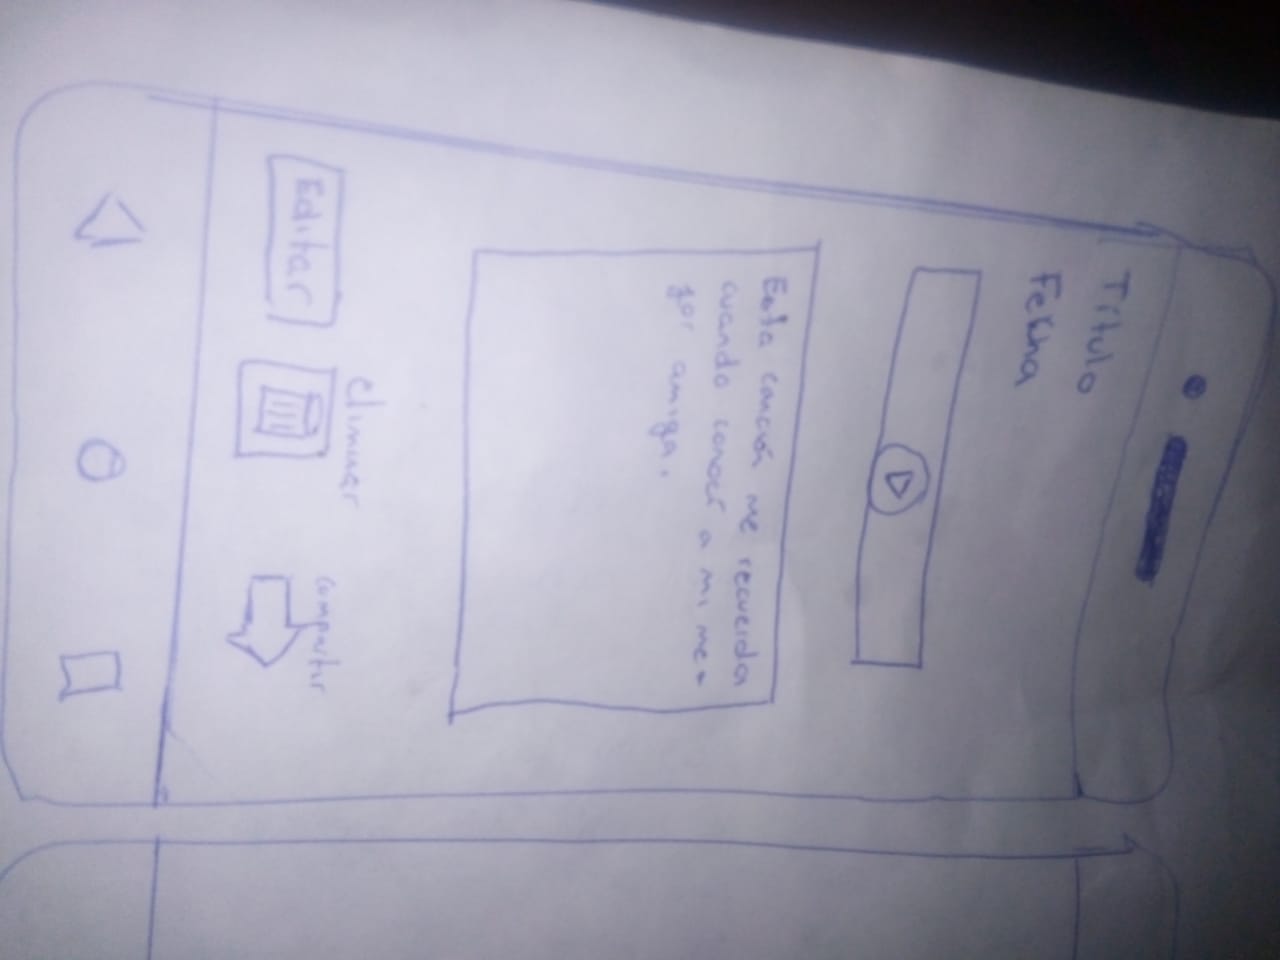 Título
Fecha
Esta canción me recuerda
cuando conocí a mi me-
jor amiga.
Editar
eliminar
compartir